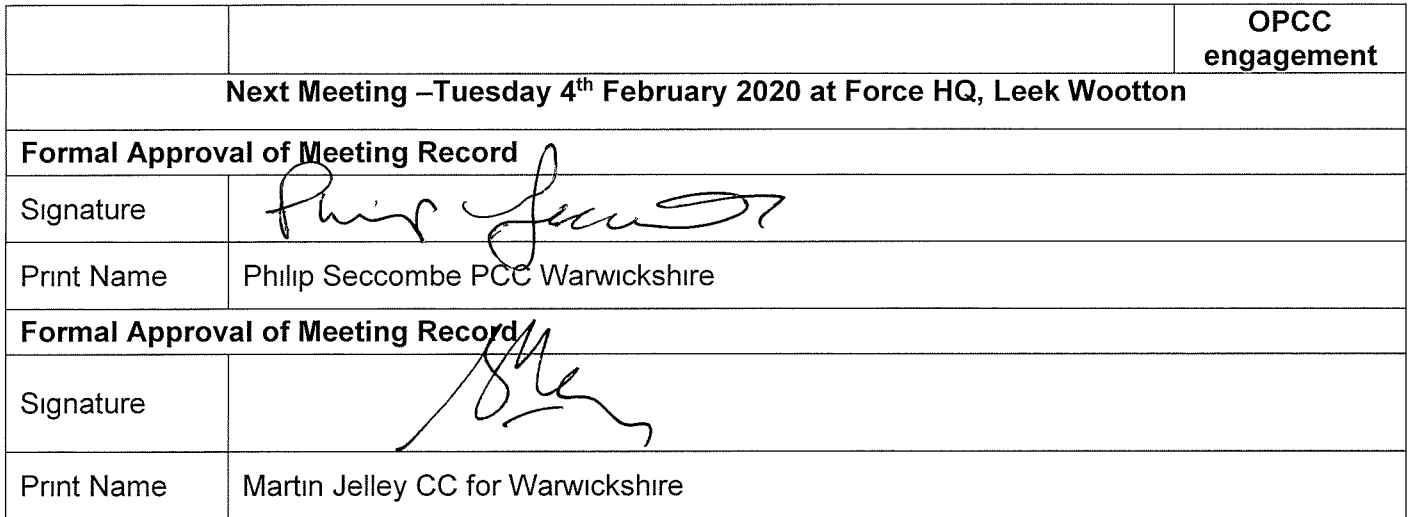 OPCC
engagement
Next Meeting –Tuesday 4th February 2020 at Force HQ, Leek Wootton
Formal Approval of Meeting Record
Signature
Philip Seccombe
Print Name
Philip Seccombe PCC Warwickshire
Formal Approval of Meeting Record
Signature
Print Name
Martin Jelley CC for Warwickshire